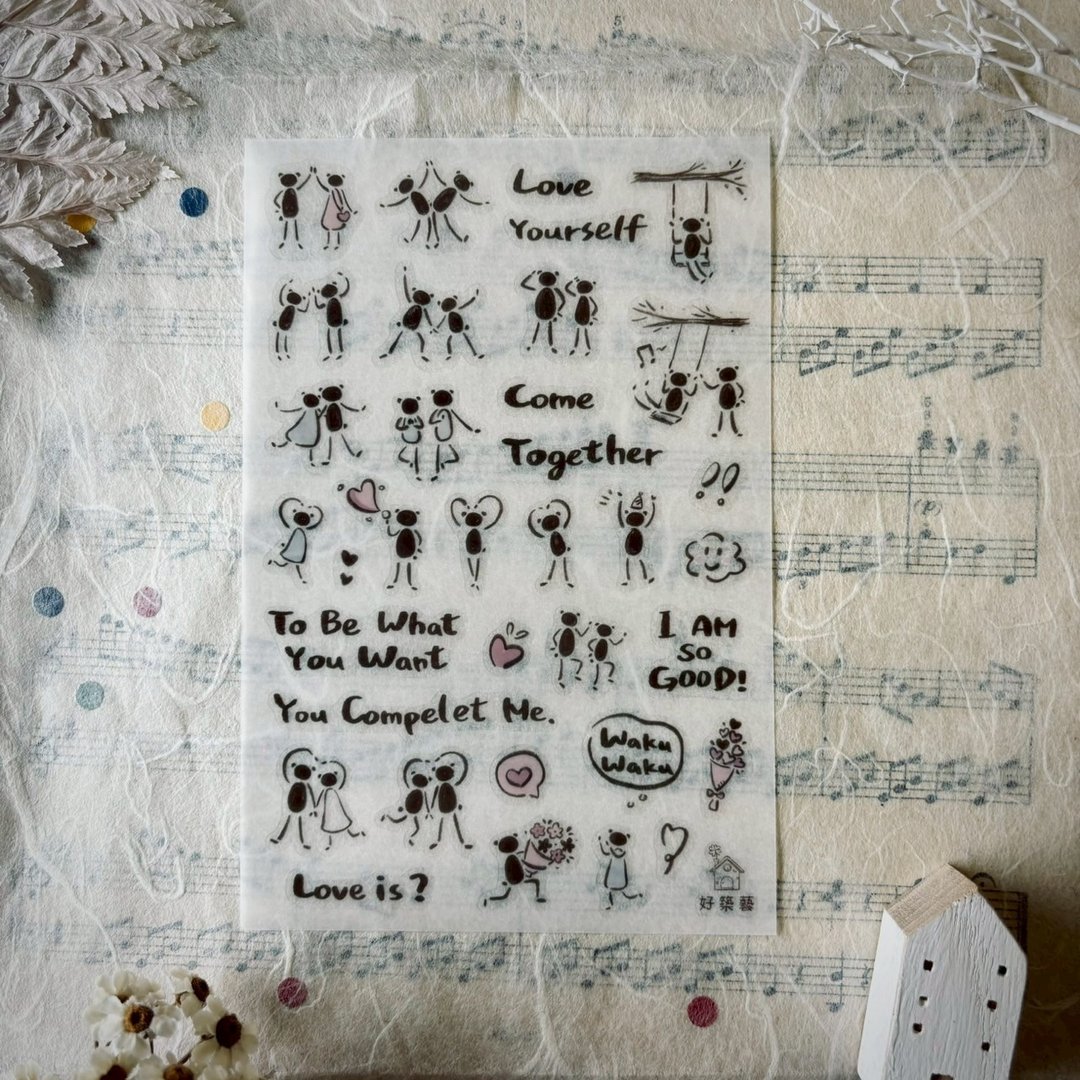 Love
Yourself
Come
Together
To Be What
You Want
I AM
SO
GOOD!
You Compelet Me.
Waku
Waku
Love is?
好築藝